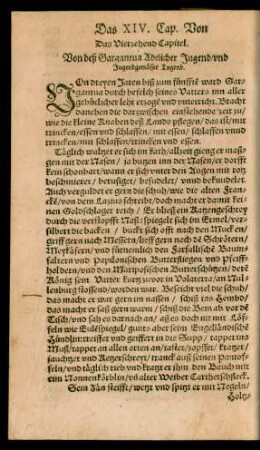 Das XIV. Cap. Von
Das Vierzehend Capitel.
Von deß Gargantua Adelicher Jugend/vnd
Jugendgemåser Tugend.
VOn dreyen Jaren biß zum fünffte ward Gar-
gantua durch befelch seines Vatters inn aller
gebürlicher lehr erzogẽ vnd vnterricht. Bracht
daneben die darzwischen einstehende zeit zu/
wie die kleine Knaben deß Lands pflegen/das ist/mit
trincken/essen vnd schlaffen/ mit essen/ schlaffen vnnd
trincken/mit schlaffen/trincken vnd essen.
Täglich waltzet er sich im kath/allzeit gieng er mas-
gen mit der Nasen/ ja burgen inn der Nasen/er dorfft
kein schonbart/wann er sich vnter den Augen mit rotz
beschmieret/ berusiget/ beseselet/ vnnd bekundelet.
Auch vergulbet er gern die schuh/wie die alten Fran-
cke/von dem Lazius schreibt/doch macht er damit kei-
nen Goldschlager reich/ Er bließ ein Katzengeschrey
durch die
silbert die backen/ buckt sich offt nach den Mucken/
griff gern nach Messern/lieff gern nach dẽ Schrötern/
Meykäfern/ vnd
faltern vnd Papilonischen Butterfligen vnd Pfeiff-
holdern/vnd den Mariposischen Butterschützen/ derẽ
König sein Vatter kurtz zuvor in Volaterra/an Mal-
lenburg stossend/worden war. Beseicht viel die schuh/
das macht er war gern im nassen/ schiß ins Hembd/
das macht er saß gern warm/ schiß die Bein ab vor dẽ
Tisch/vnd sah es darnach an/ aß es doch nit mit Löf-
feln wie Eulẽspiegel/ gunts aber sein Engelländische
Hündlin:treiffet vnd geiffert in die Supp/ tappet ins
Muß/tappet an allen orten an/taster/zopffet/ kratzet/
jauchtzet vnd Ketzerschreyt/ tranck auß seinen Pantof-
feln/vnd täglich rieb vnd kratzt er ihm den Bauch mit
eim Nonnenkörblin/vñ alter Weiber
Sein Zän steifft/ wetzt vnd spitzt er mit Negeln/
Holtz/